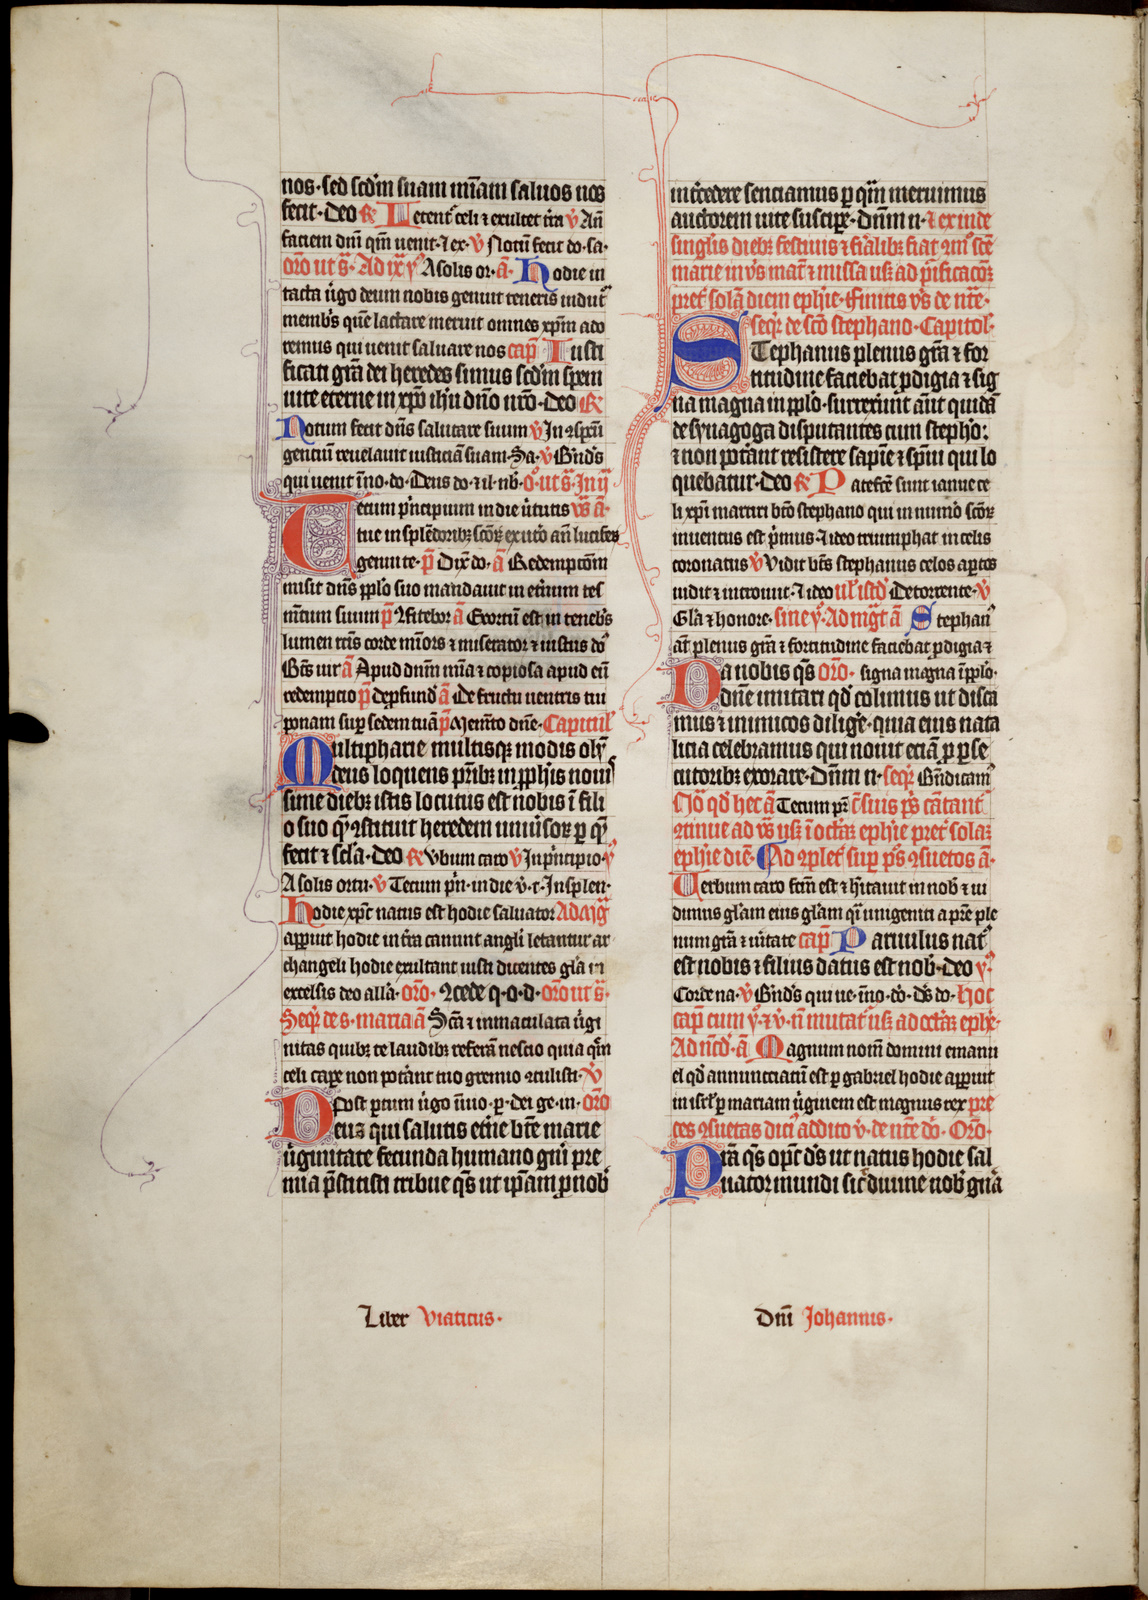 nos · sed scdm suam miam saluos nos
fecit · Deo R Letent celi ⁊ exultet tra v An
faciem dni qm uenit · ⁊ ex · v Notum fecit do · sa ·
oro ut s · Ad ix ps A solis or · a · Hodie in
tacta ugo deum nobis genuit teneris indut
membs que lactare meruit omnes xpm ado
remus qui uenit saluare nos cap Iusti
ficati gra dei heredes simus scdm spem
uite eterne in xpo ihu dno nro · Deo R
Notum fecit dns salutare suum v In ɔspcu
gentiu reuelauit iusticia suam · Sa · v Bnds
qui uenit i no · do · Deus do · ⁊ il · nb · o · ut s · In ij
Tecum pncipium in die ututis vs a ·
tue in splendoribz scorz ex uto an lucifez
genui te · p Dix do · a Redemptcem
misit dns pplo suo mandauit in eternum tes
mtum suum p ɔfitebor a Exortu est in tenebs
lumen rcis corde misors ⁊ miserator ⁊ iustus do
Bts uir a Apud dnm mia ⁊ copiosa apud eu
redempcio p deprfund a De fructu uentris tui
ponam sup sedem tua p Memto dne · Capitul
Multipharie multisqz modis oly
deus loquens prbz in pphis noui
sime diebz istis locutus est nobis i fili
o suo que ɔstituit heredem uniusorz p que
fecit ⁊ scla · Deo R Vbum caro v In pncipio · v
A solis ortu · v Tecum pn · in die v · t · In splen ·
Hodie xpc natus est hodie saluator Ad mg
apparuit hodie in tra canunt angli letantur ar
changeli hodie exultant iusti dicentes gla in
excelsis deo alla · oro · ɔcede q · o · d · oro ut s ·
Seqr de s · maria a Sca ⁊ inmaculata ugi
nitas quibz te laudibz referam nescio quia qm
celi cape non poterant tuo gremio ɔtulisti · v
Post ptum ugo inuio · p · dei ge · in · oro
Deus qui salutis eterne bte marie
uginitate fecunda humano gni pre
mia pstitisti tribue qs ut ipam p nob
intcedere senciamus p qm meruimus
auctorem uite suscipe · dnm n · ⁊ exinde
singlis diebz festiuis ⁊ ferialibz fiat
marie in vs mat ⁊ missa usqz ad pificacoz
pret sola diem ephie · Finitis vs de nte ·
seqr de sco stephano · Capitol ·
Stephanus plenus gra ⁊ for
titudine faciebat pdigia ⁊ sig
na magna in pplo · surrexerunt aut quida
de synagoga disputantes cum stepho :
⁊ non poterant resistere sapie ⁊ spui qui lo
quebatur · Deo R Patefce sunt ianue ce
li xpi martiri bto stephano qui in numo scorz
inuentus est pmus · ⁊ ideo triumphat in celis
coronatus v Vidit bts stephanus celos aptos
uidit ⁊ introiuit · ⁊ ideo De torrente · v
Gla ⁊ honore · sine v · Ad mgt a Stephan
at plenus gra ⁊ fortitudine faciebat pdigia ⁊
signa magna i pplo ·
Da nobis qs oro ·
dne imitari qd colimus ut disca
mus ⁊ inimicos dilige · quia eius nata
licia celebramus qui nouit ecia p pse
cutoribz exorare · Dnm n · seqr Bndicam
qd hec a Tecum pn cantant
ɔtinue ad vs usqz i octas ephie pret solaz
ephie die · Ad ɔplet sup ps ɔsuetos a ·
Verbum caro fcm est ⁊ hitauit in nob ⁊ ui
dimus glam eius glam qi unigeniti a pre ple
num gra ⁊ uitate cap Paruulus nat
est nobis ⁊ filius datus est nob · deo v ·
Corde na · v Bnds qui ue · i no · do · ds do · hoc
cap cum ⁊ v · n mutat usqz ad octas ephie ·
Ad ncd · a Magnum nome domini emanu
el qd annunciatu est p gabriel hodie apparuit
in isrl p mariam uginem est magnus rex pre
ces ɔsuetas dic addito v · de nte do · Oro ·
Pra qs opc ds ut natus hodie sal
uator mundi sic diuine nob gna
Liber Viaticus ·
Dni Johannis ·